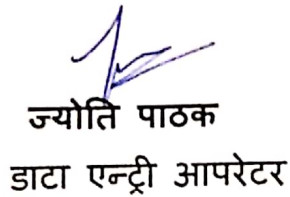 ज्योति पाठक
डाटा एन्ट्री आपरेटर